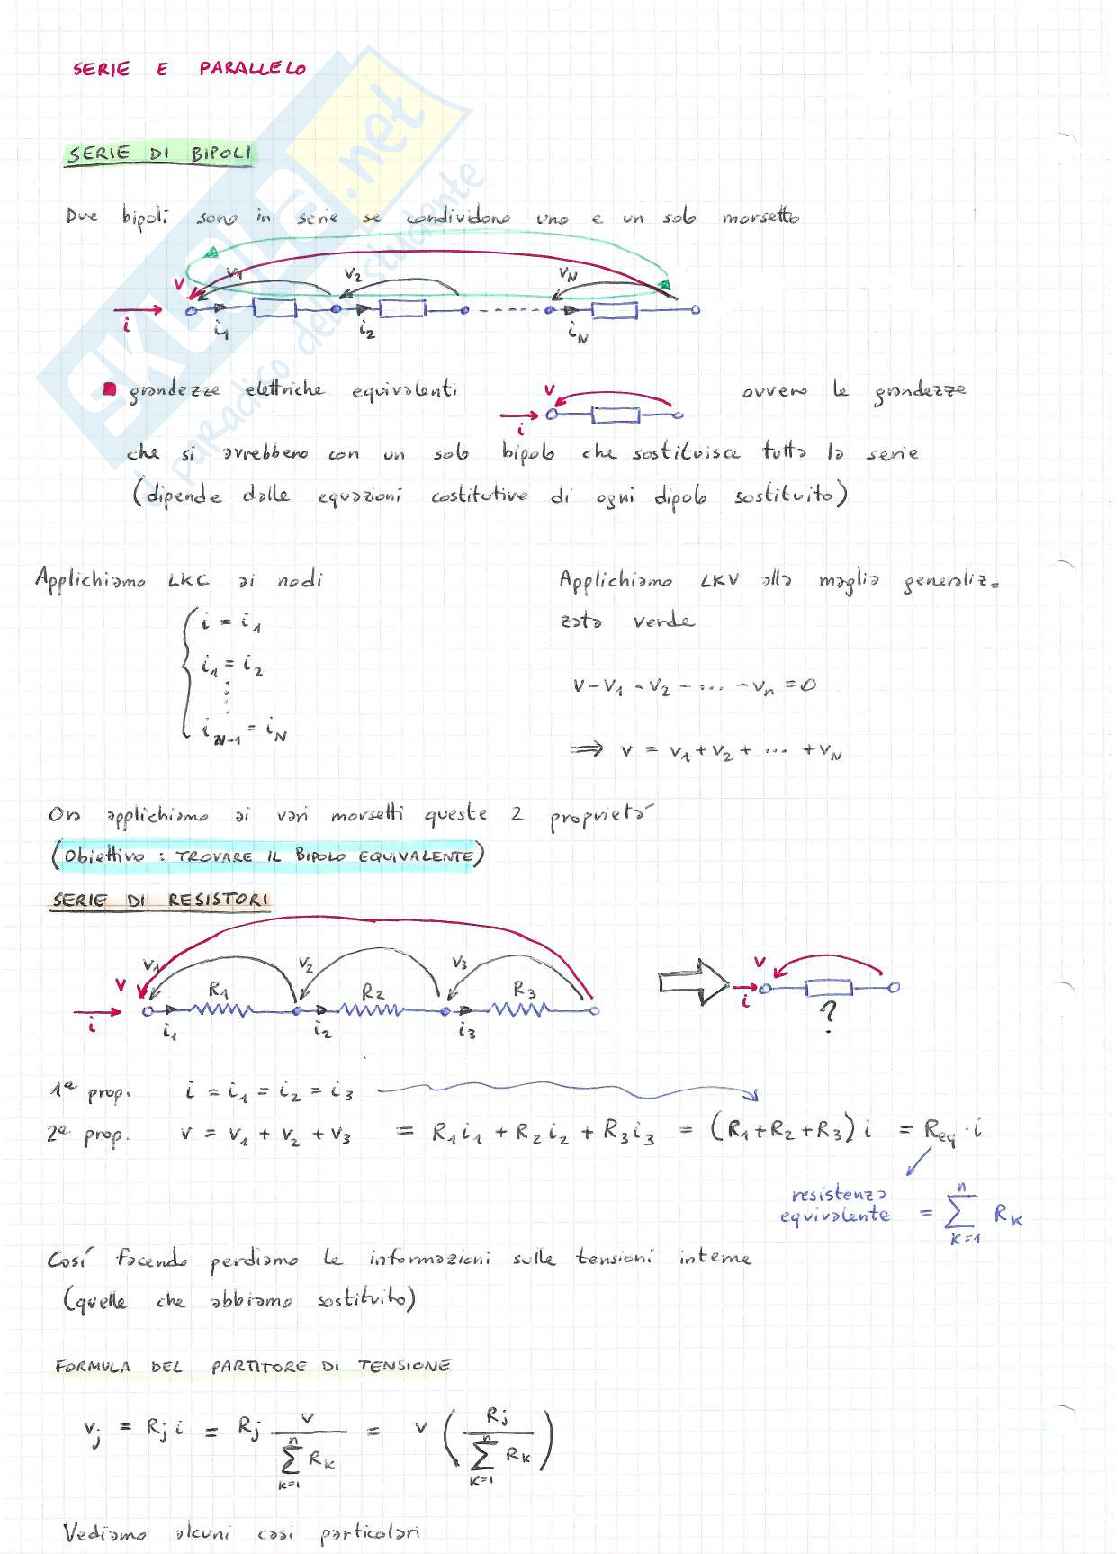 SERIE E PARALLELO
SERIE DI BIPOLI
Due bipoli sono in serie se condividono uno e un solo morsetto
v v1 v2 vN
i i1 i2 iN
grandezze elettriche equivalenti v i ovvero le grandezze
che si avrebbero con un solo bipolo che sostituisca tutta la serie
(dipende dalle equazioni costitutive di ogni dipolo sostituito)
Applichiamo LKC ai nodi
i = i1
i1 = i2
iN-1 = iN
Applichiamo LKV alla maglia generaliz-
zata verde
v-v1-v2-...-vn=0
⇒ v = v1+v2+...+vN
Ora applichiamo ai vari morsetti queste 2 proprietá
(Obiettivo: TROVARE IL BIPOLO EQUIVALENTE)
SERIE DI RESISTORI
v v1 v2 v3
R1 R2 R3
i i1 i2 i3
v i ?
1ª prop. i = i1 = i2 = i3
2ª prop. v = v1 + v2 + v3 = R1i1 + R2i2 + R3i3 = (R1+R2+R3)i = Req·i
resistenza
equivalente = ∑ n k=1 Rk
Cosí facendo perdiamo le informazioni sulle tensioni interne
(quelle che abbiamo sostituito)
FORMULA DEL PARTITORE DI TENSIONE
vj = Rj i = Rj v / ∑ n k=1 Rk = v (Rj / ∑ n k=1 Rk)
Vediamo alcuni casi particolari
SKUOLA.net
il paradiso dello studente